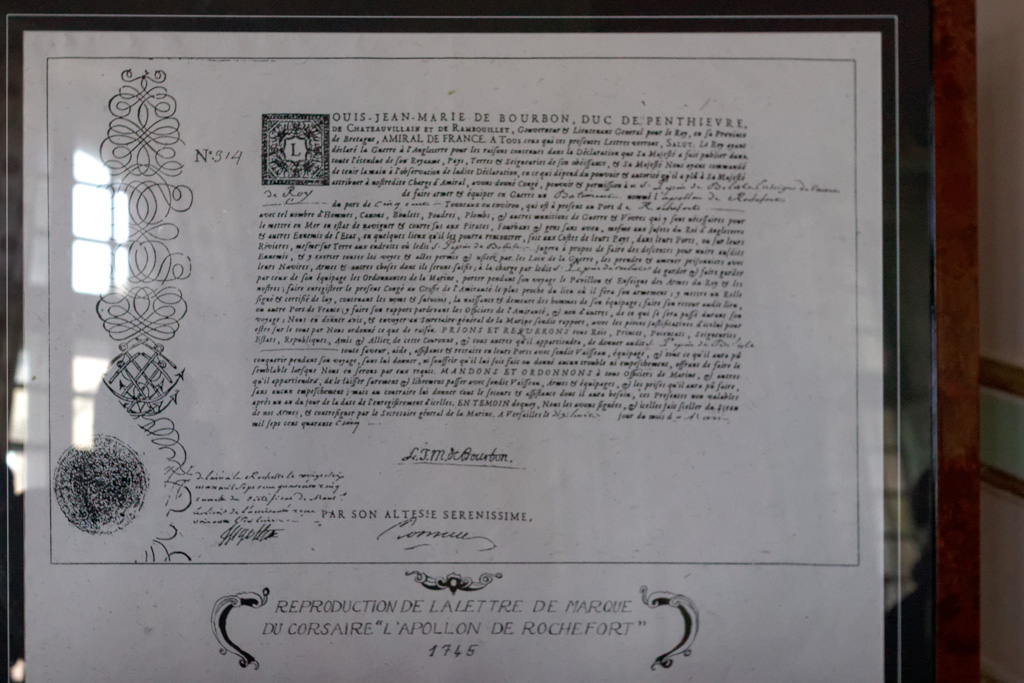 N.° 314
LOUIS-JEAN-MARIE DE BOURBON, DUC DE PENTHIEVRE,
DE CHATEAUVILLAIN ET DE RAMBOUILLET, Gouverneur & Lieutenant General pour le Roy, en sa Province
de Bretagne, AMIRAL DE FRANCE. A TOUS ceux qui ces presentes Lettres verront, SALUT. Le Roy ayant
déclaré la Guerre à l'Angleterre pour les raisons contenuës dans la Déclaration que Sa Majesté a fait publier dans
toute l'étenduë de son Royaume, Pays, Terres & Seigneuries de son obéissance, & Sa Majesté Nous ayant commandé
de tenir la main à l'observation de ladite Déclaration, en ce qui dépend du pouvoir & autorité qu'il a plû à Sa Majesté
attribuer à nostredite Charge d'Amiral, avons donné Congé, pouvoir & permission à
de Roy de faire armer & équiper en Guerre un Bâtiment nommé l'apollon de Rochefort
du port de Cinq cens Tonneaux ou environ, qui est à present au Port de Rochefort
avec tel nombre d'Hommes, Canons, Boulets, Poudres, Plombs, & autres munitions de Guerre & Vivres qui y sont nécessaires pour
le mettre en Mer en estat de naviguer & courre sus aux Pirates, Fourbans & gens sans aveu, mesme aux sujets du Roi d'Angleterre
& autres Ennemis de l'Estat, en quelques lieux qu'il les pourra rencontrer, soit aux Costes de leurs Pays, dans leurs Ports, ou sur leurs
Rivieres, mesme sur Terre aux endroits où ledit S. jugera à propos de faire des descentes pour nuire ausdits
Ennemis, & y exercer toutes les voyes & actes permis & usitez par les Loix de la Guerre, les prendre & amener prisonniers avec
leurs Navires, Armes & autres choses dont ils seront saisis; à la charge par ledit S. de garder & faire garder
par ceux de son équipage les Ordonnances de la Marine, porter pendant son voyage le Pavillon & Enseigne des Armes du Roy & les
nostres; faire enregistrer le present Congé au Greffe de l'Amirauté le plus proche du lieu où il fera son armement; y mettre un Rolle
signé & certifié de luy, contenant les noms & surnoms, la naissance & demeure des hommes de son équipage; faire son retour audit lieu,
ou autre Port de France; y faire son rapport pardevant les Officiers de l'Amirauté, & non d'autres, de ce qui se sera passé durant son
voyage; Nous en donner avis, & envoyer au Secretaire général de la Marine sondit rapport, avec les pieces justificatives d'icelui pour
estre sur le tout par Nous ordonné ce que de raison. PRIONS ET REQUERONS tous Rois, Princes, Potentats, Seigneuries,
Estats, Republiques, Amis & Alliez de cette Couronne, & tous autres qu'il appartiendra, de donner audit S.
toute faveur, aide, assistance & retraite en leurs Ports avec sondit Vaisseau, équipage, & tout ce qu'il aura pû
conquerir pendant son voyage, sans lui donner, ni souffrir qu'il lui soit fait ou donné aucun trouble ni empeschement, offrant de faire le
semblable lorsque Nous en serons par eux requis. MANDONS ET ORDONNONS à tous Officiers de Marine, & autres
qu'il appartiendra, de le laisser surement & librement passer avec sondit Vaisseau, Armes & équipages, & les prises qu'il aura pû faire,
sans aucun empeschement; mais au contraire lui donner tout le secours & assistance dont il aura besoin, ces Presentes non valables
après un an du jour de la date de l'enregistrement d'icelles. EN TEMOIN dequoy, Nous les avons signées, & icelles fait sceller du Sceau
de nos Armes, & contresigner par le Secretaire général de la Marine. A Versailles le jour du mois d
mil sept cens quarante Cinq
L.J.M. de Bourbon.
PAR SON ALTESSE SERENISSIME,
REPRODUCTION DE LA LETTRE DE MARQUE
DU CORSAIRE "L'APOLLON DE ROCHEFORT"
1745